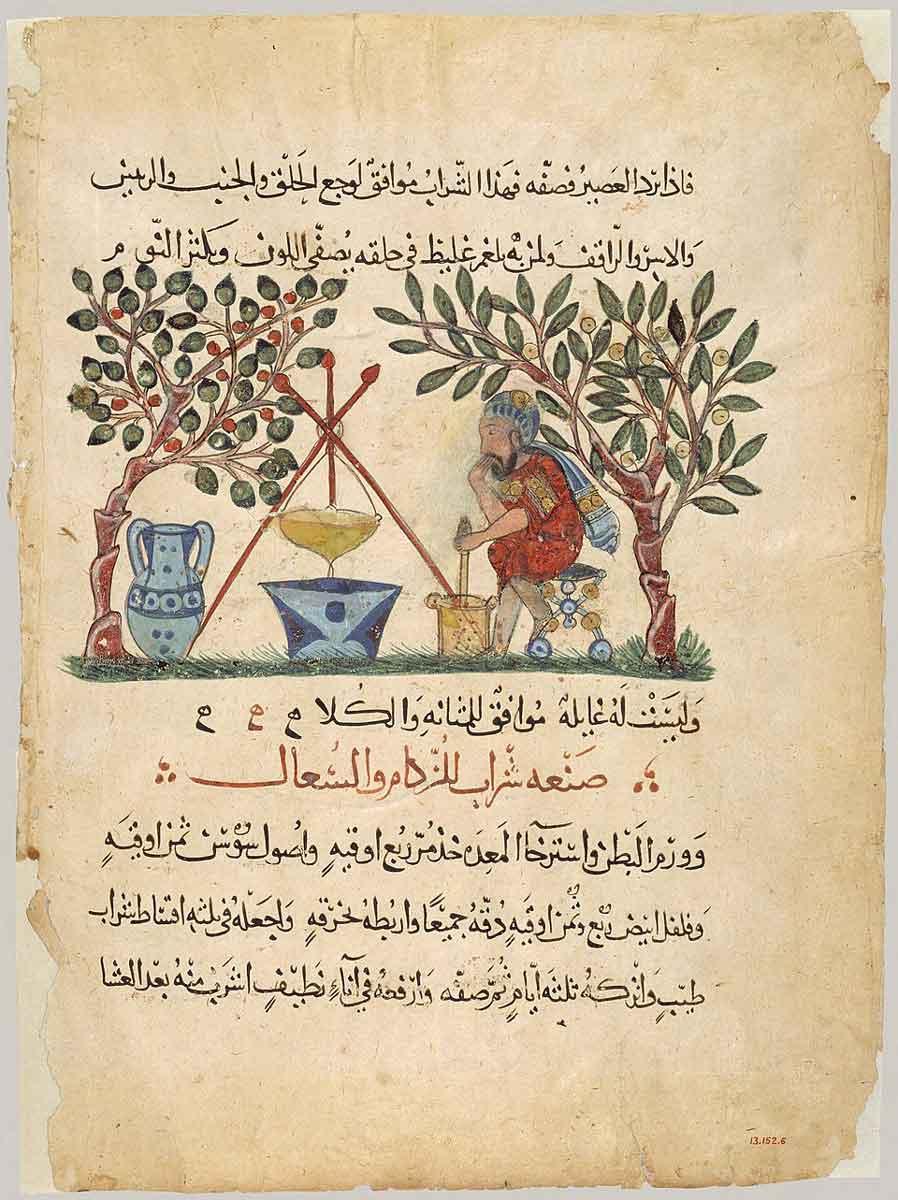 فاذا برد العصير فصفه فهذا الشراب موافق لوجع الحلق والجنب والرئتين
ولمن به بلغم غليظ في حلقه يصفي اللون ويكثر النوم
وليست له غايله موافق للمثانه والكلا ح ح ح
صنعه شراب للزكام والسعال
وورم البطن واسترخا المعده خذ مر ربع اوقيه واصول سوسن ثمن اوقيه
وفلفل ابيض ربع وثمن اوقيه دقه جميعا واربطه بخرقه واجعله في ثلثه اقساط شراب
طيب واتركه ثلثه ايام ثم صفه وارفعه في اناء نظيف اشرب منه بعد العشا
13.152.6